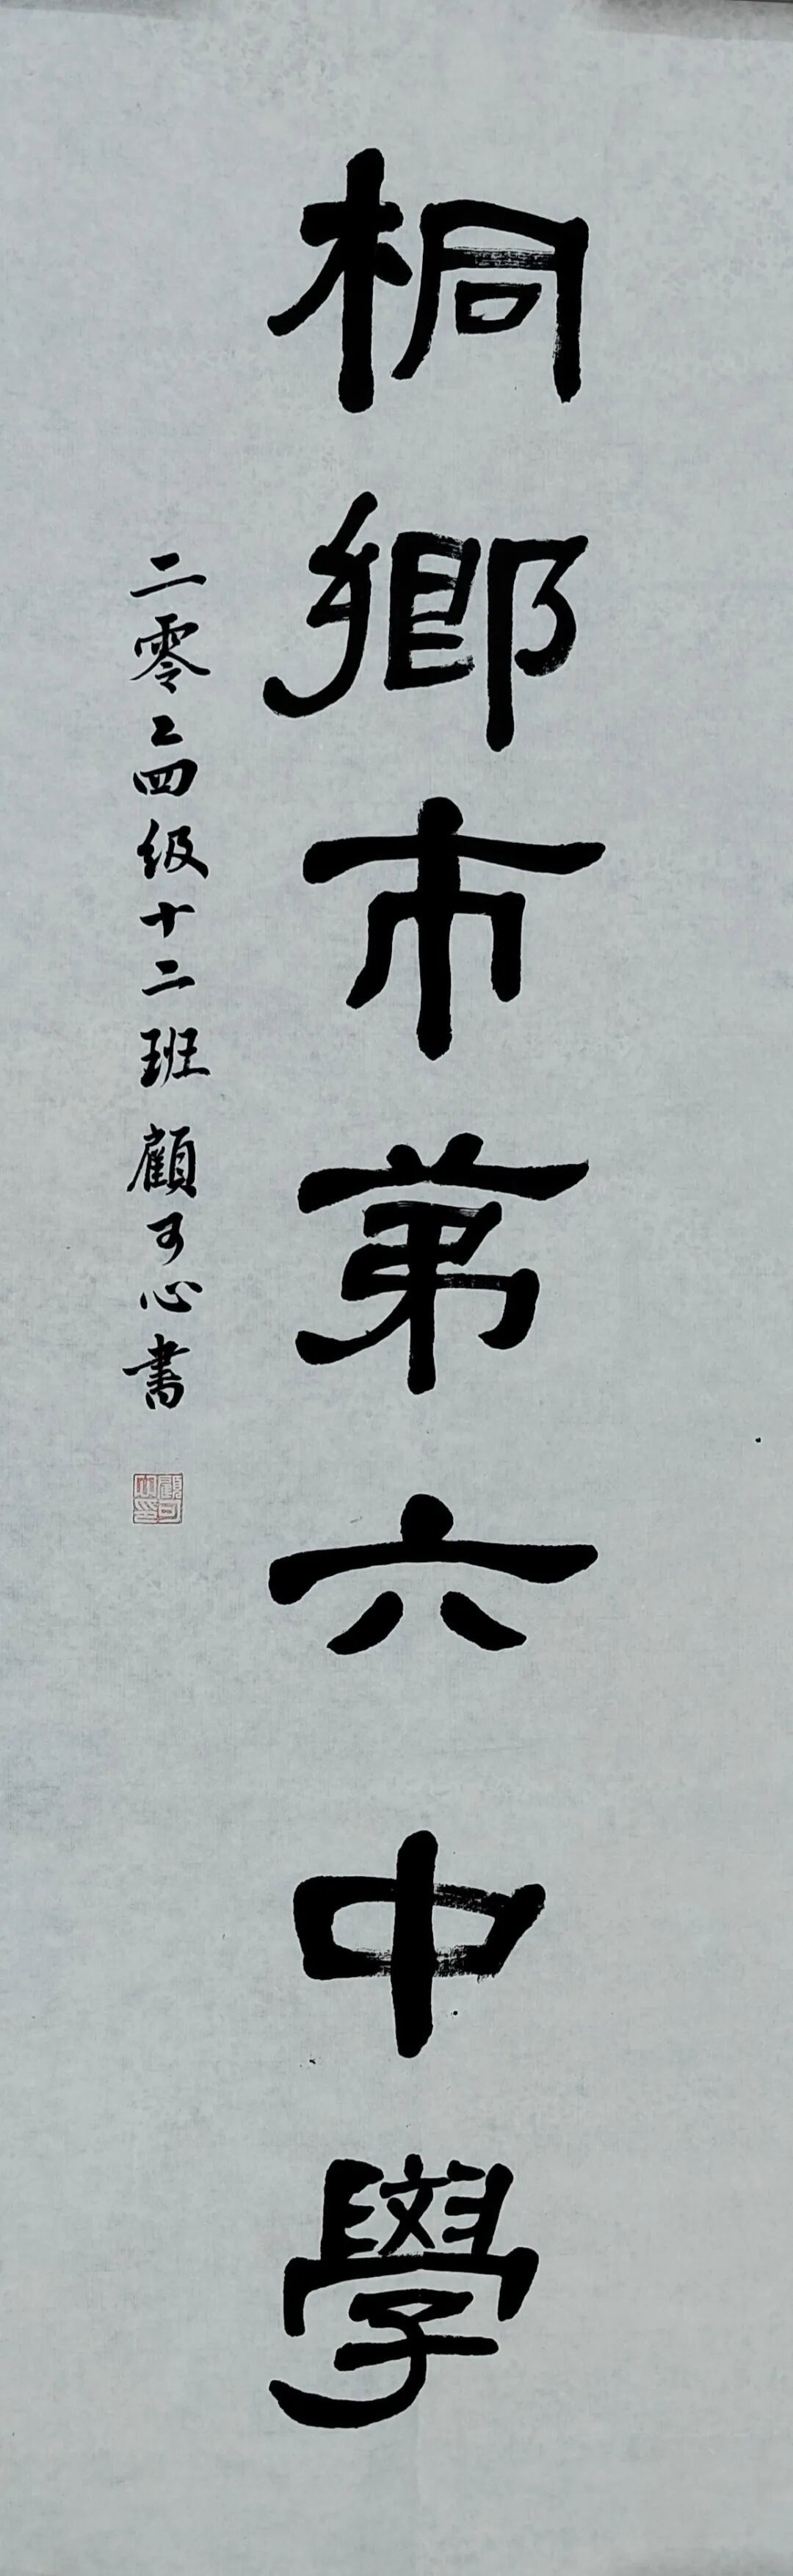 桐鄉市苐六中學
二零二四级十二班 顧可心書
顧可心印